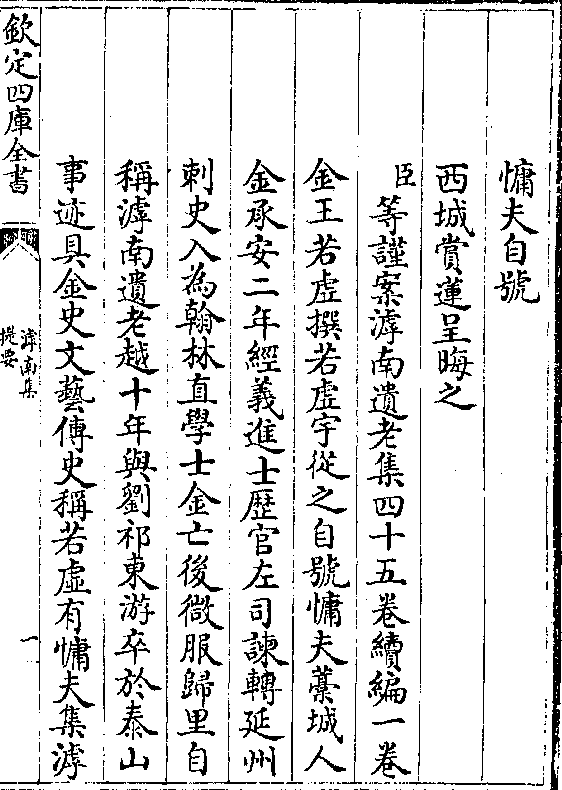 慵夫自號
西城賞蓮呈晦之
臣等謹案滹南遺老集四十五卷續編一卷
金王若虛撰若虛字從之自號慵夫藁城人
金承安二年經義進士歴官左司諫轉延州
刺史入為翰林直學士金亡後微服歸里自
稱滹南遺老越十年與劉祁東游卒於泰山
事迹具金史文藝傳史稱若虛有慵夫集滹
欽定四庫全書
滹南集
提要
一